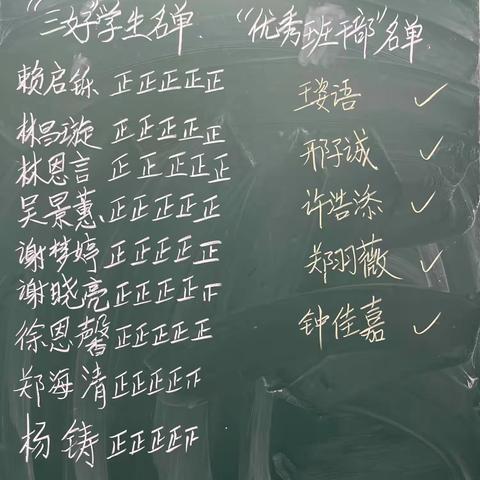 "三好"学生名单
赖启铄 正正正正正
林昌璇 正正正正正
林恩言 正正正正正
吴景蕙 正正正正正
谢梦婷 正正正正正
谢晓亮 正正正正正
徐恩馨 正正正正正
郑海清 正正正正正
杨铸 正正正正正
"优秀班干部"名单
王姿语 ✓
邢子诚 ✓
许浩添 ✓
郑羽薇 ✓
钟佳嘉 ✓